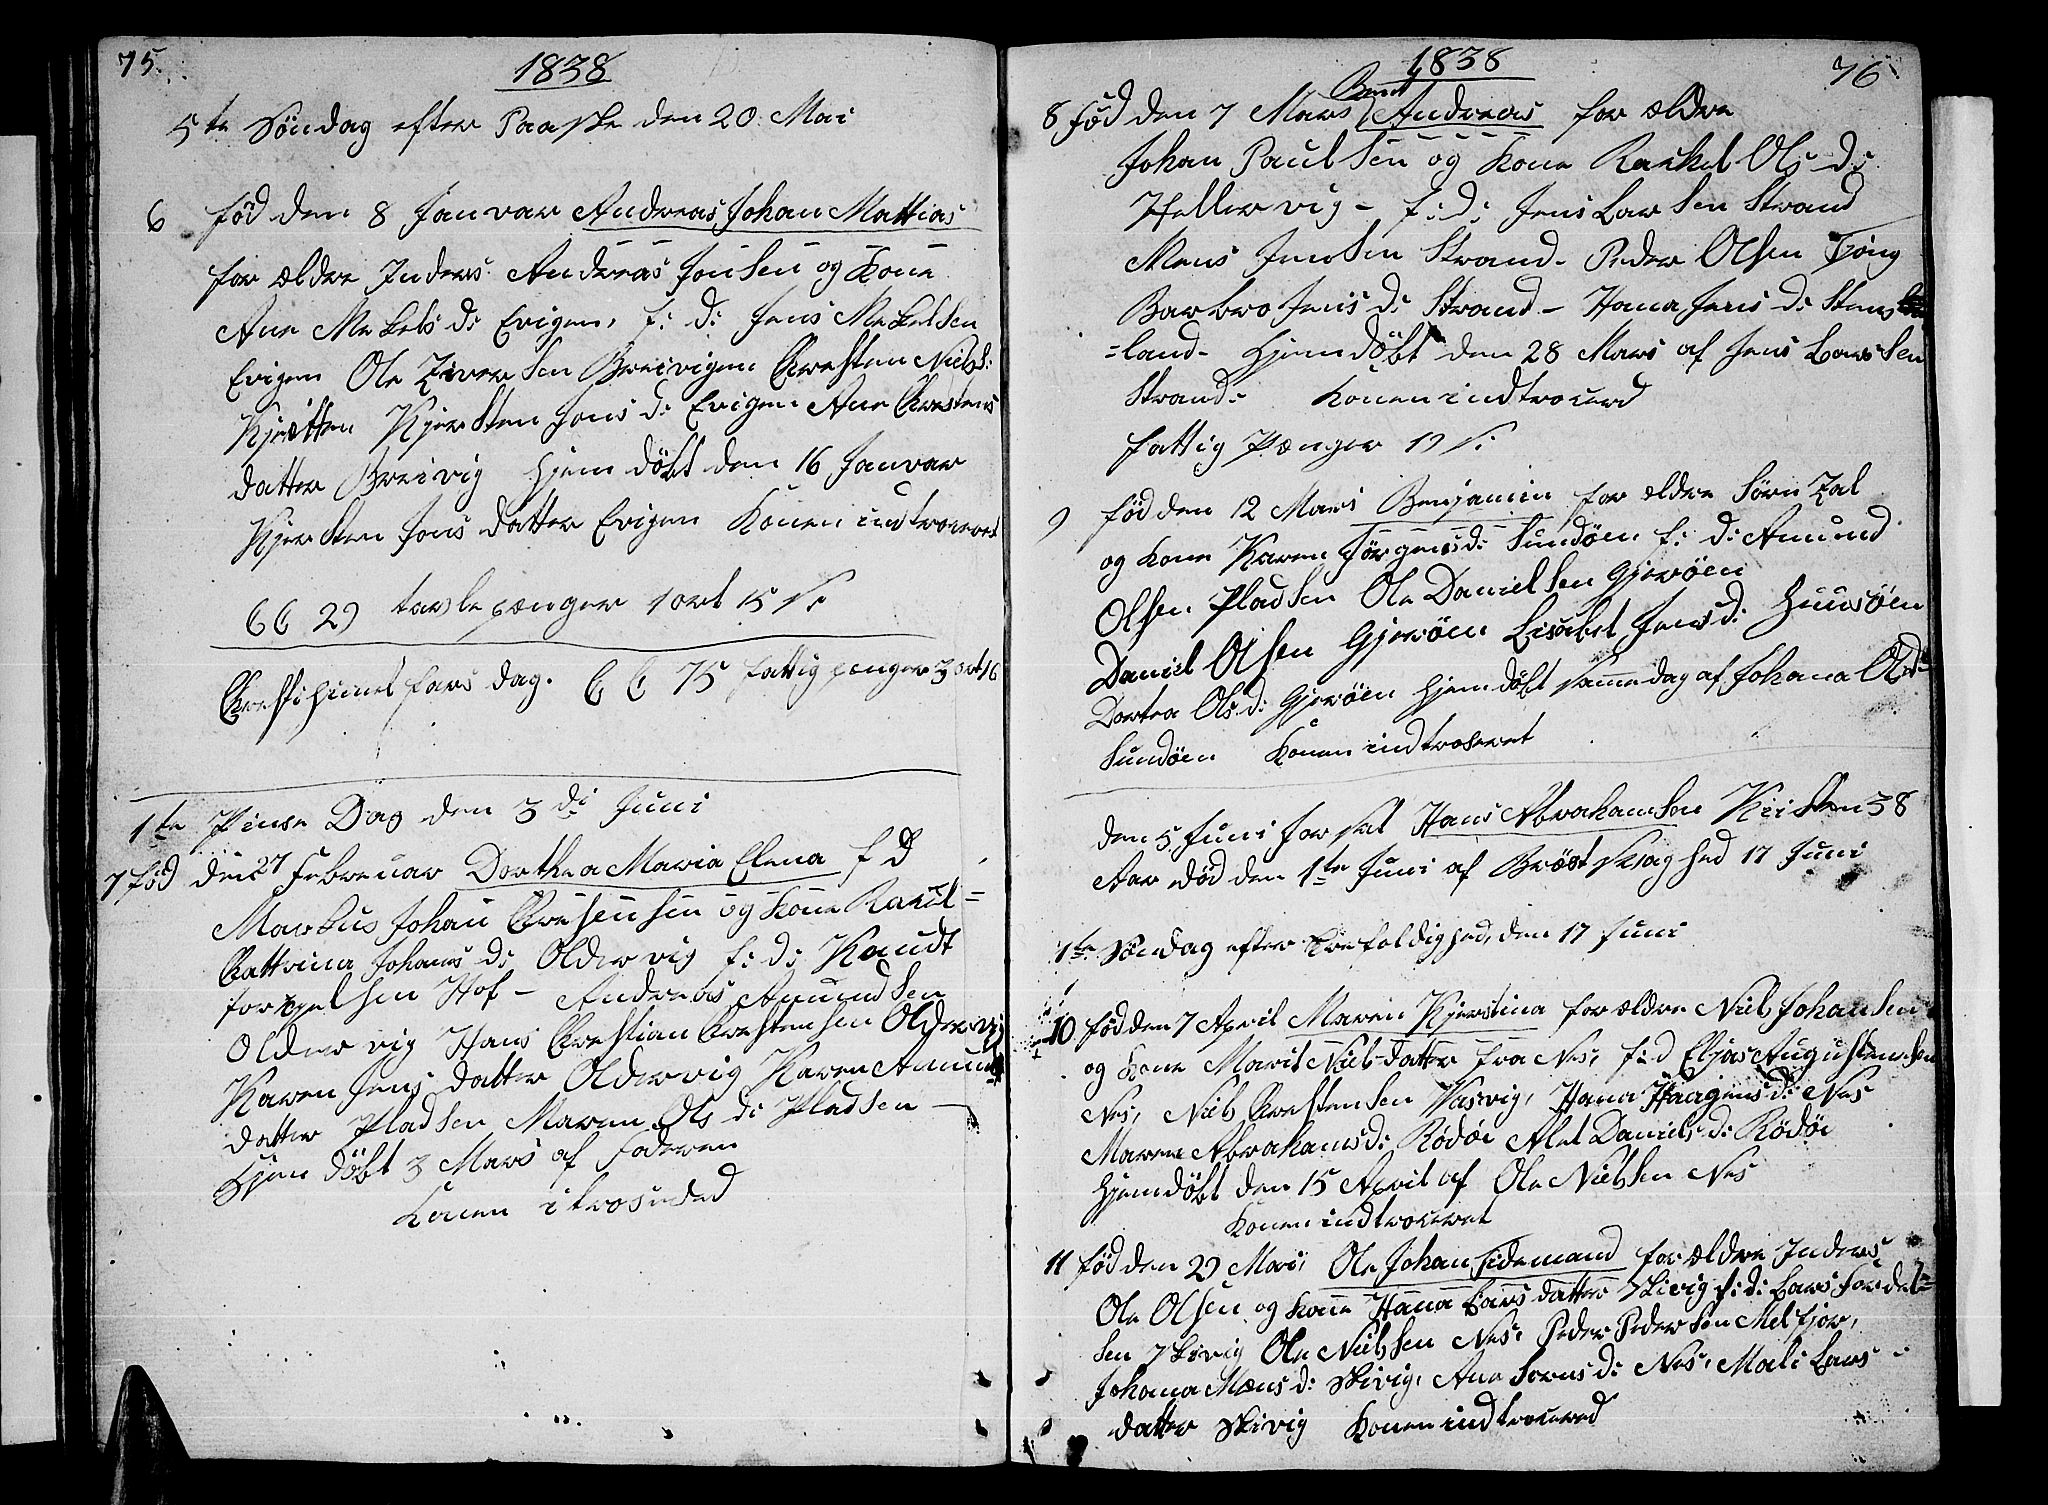 75.
1838
5te Söndag efter Paaske den 20. Mai
6 fód den 8 Januar Andreas Johan Mattias
for ældre Inders Andreas Jonsen og Kone
Ane Mekels d: Evigen, f: d: Jens Mekelsen
Evigen Ole Iversen Breivigen Chresten Niels:
Kjersten Jons d: Evigen Ane Chrestens
datter Breivig Hjem döbt den 16 Januar
Kjersten Jons datter Evigen Konen introseret
C C 29 tavle pænger 1 ort 15 s:
Chresti himel fars dag. C C 75 fattig penger 3 ort 16
1te Pinse Dag den 3di Juni
7 fód den 27 Februar Dorthea Maria Elena f d
Markus Johan Chresensen og Kone
Cattrina Johans d: Oldervig f: d: Knudt
Hof - Andreas Amundsen
Oldervig Hans Chrestian Chrestensen Oldervig
Karen Jens datter Oldervig Karen Amund
datter Pladsen Maren Ols d: Pladsen
Hjem döbt 3 Mars af Faderen
Konen itroseded
1838
76
Bernt
8 Fód den 7 Mars Andreas for ældre
Johan Paulsen og Kone Rackel Ols d:
Hellervig - f: d: Jens Larsen Strand
Mons Jensen Strand - Peder Olsen Tjong
Barbro Jens d: Strand - Hana Jens d: Stens
=land - Hjemdöbt den 28 Mars af Jens Larssen
Strand: Konen indtroserd
fattig Pænger 19 s:
9 fód den 12 Mars Benjamin for ældre Sörn Zal
og Kone Karen Jörgens d: Sundöen f: d: Amund
Olsen Pladsen Ole Danielsen Gjeröen
Daniel Olsen Gjeröen Lisabet Jens d: Huusöen
Dortea Ols d: Gjeröen Hjemdöbt samme dag af Johana Ols d
Sundöen Konen indtroseret
den 5 Juni for sat Hans Abrahamsen 38
Aar död den 1te Juni af Bröst svaghed 17 Juni
1te Söndag efter Trefoldighed, den 17 Juni
10 fód den 7 April Maren Kjerstina for ældre Niels Johansen
og Kone Marit Niels datter fra Nes, f: d Eljas Augustinusen
Nes, Niels Chrestensen Vasvig, Hana Haagens d: Nes
Maren Abrahams d: Rödöe Alet Daniels d: Rödöe
Hjemdöbt den 15 April af Ole Nielsen Nes
Konen indtroseret
11 fód den 29 Mai, Ole Johan Tidemand for ældre Inders
Ole Olsen og Kone Hana Lars datter Skivig f: d: Lars
sen Skivig Ole Nielsen Nes, Peder Pedersen Melfjor,
Johana Mons d: Skivig, Ane Sorns d: Nes, Mali Lars
datter Skivig Konen indtroserd